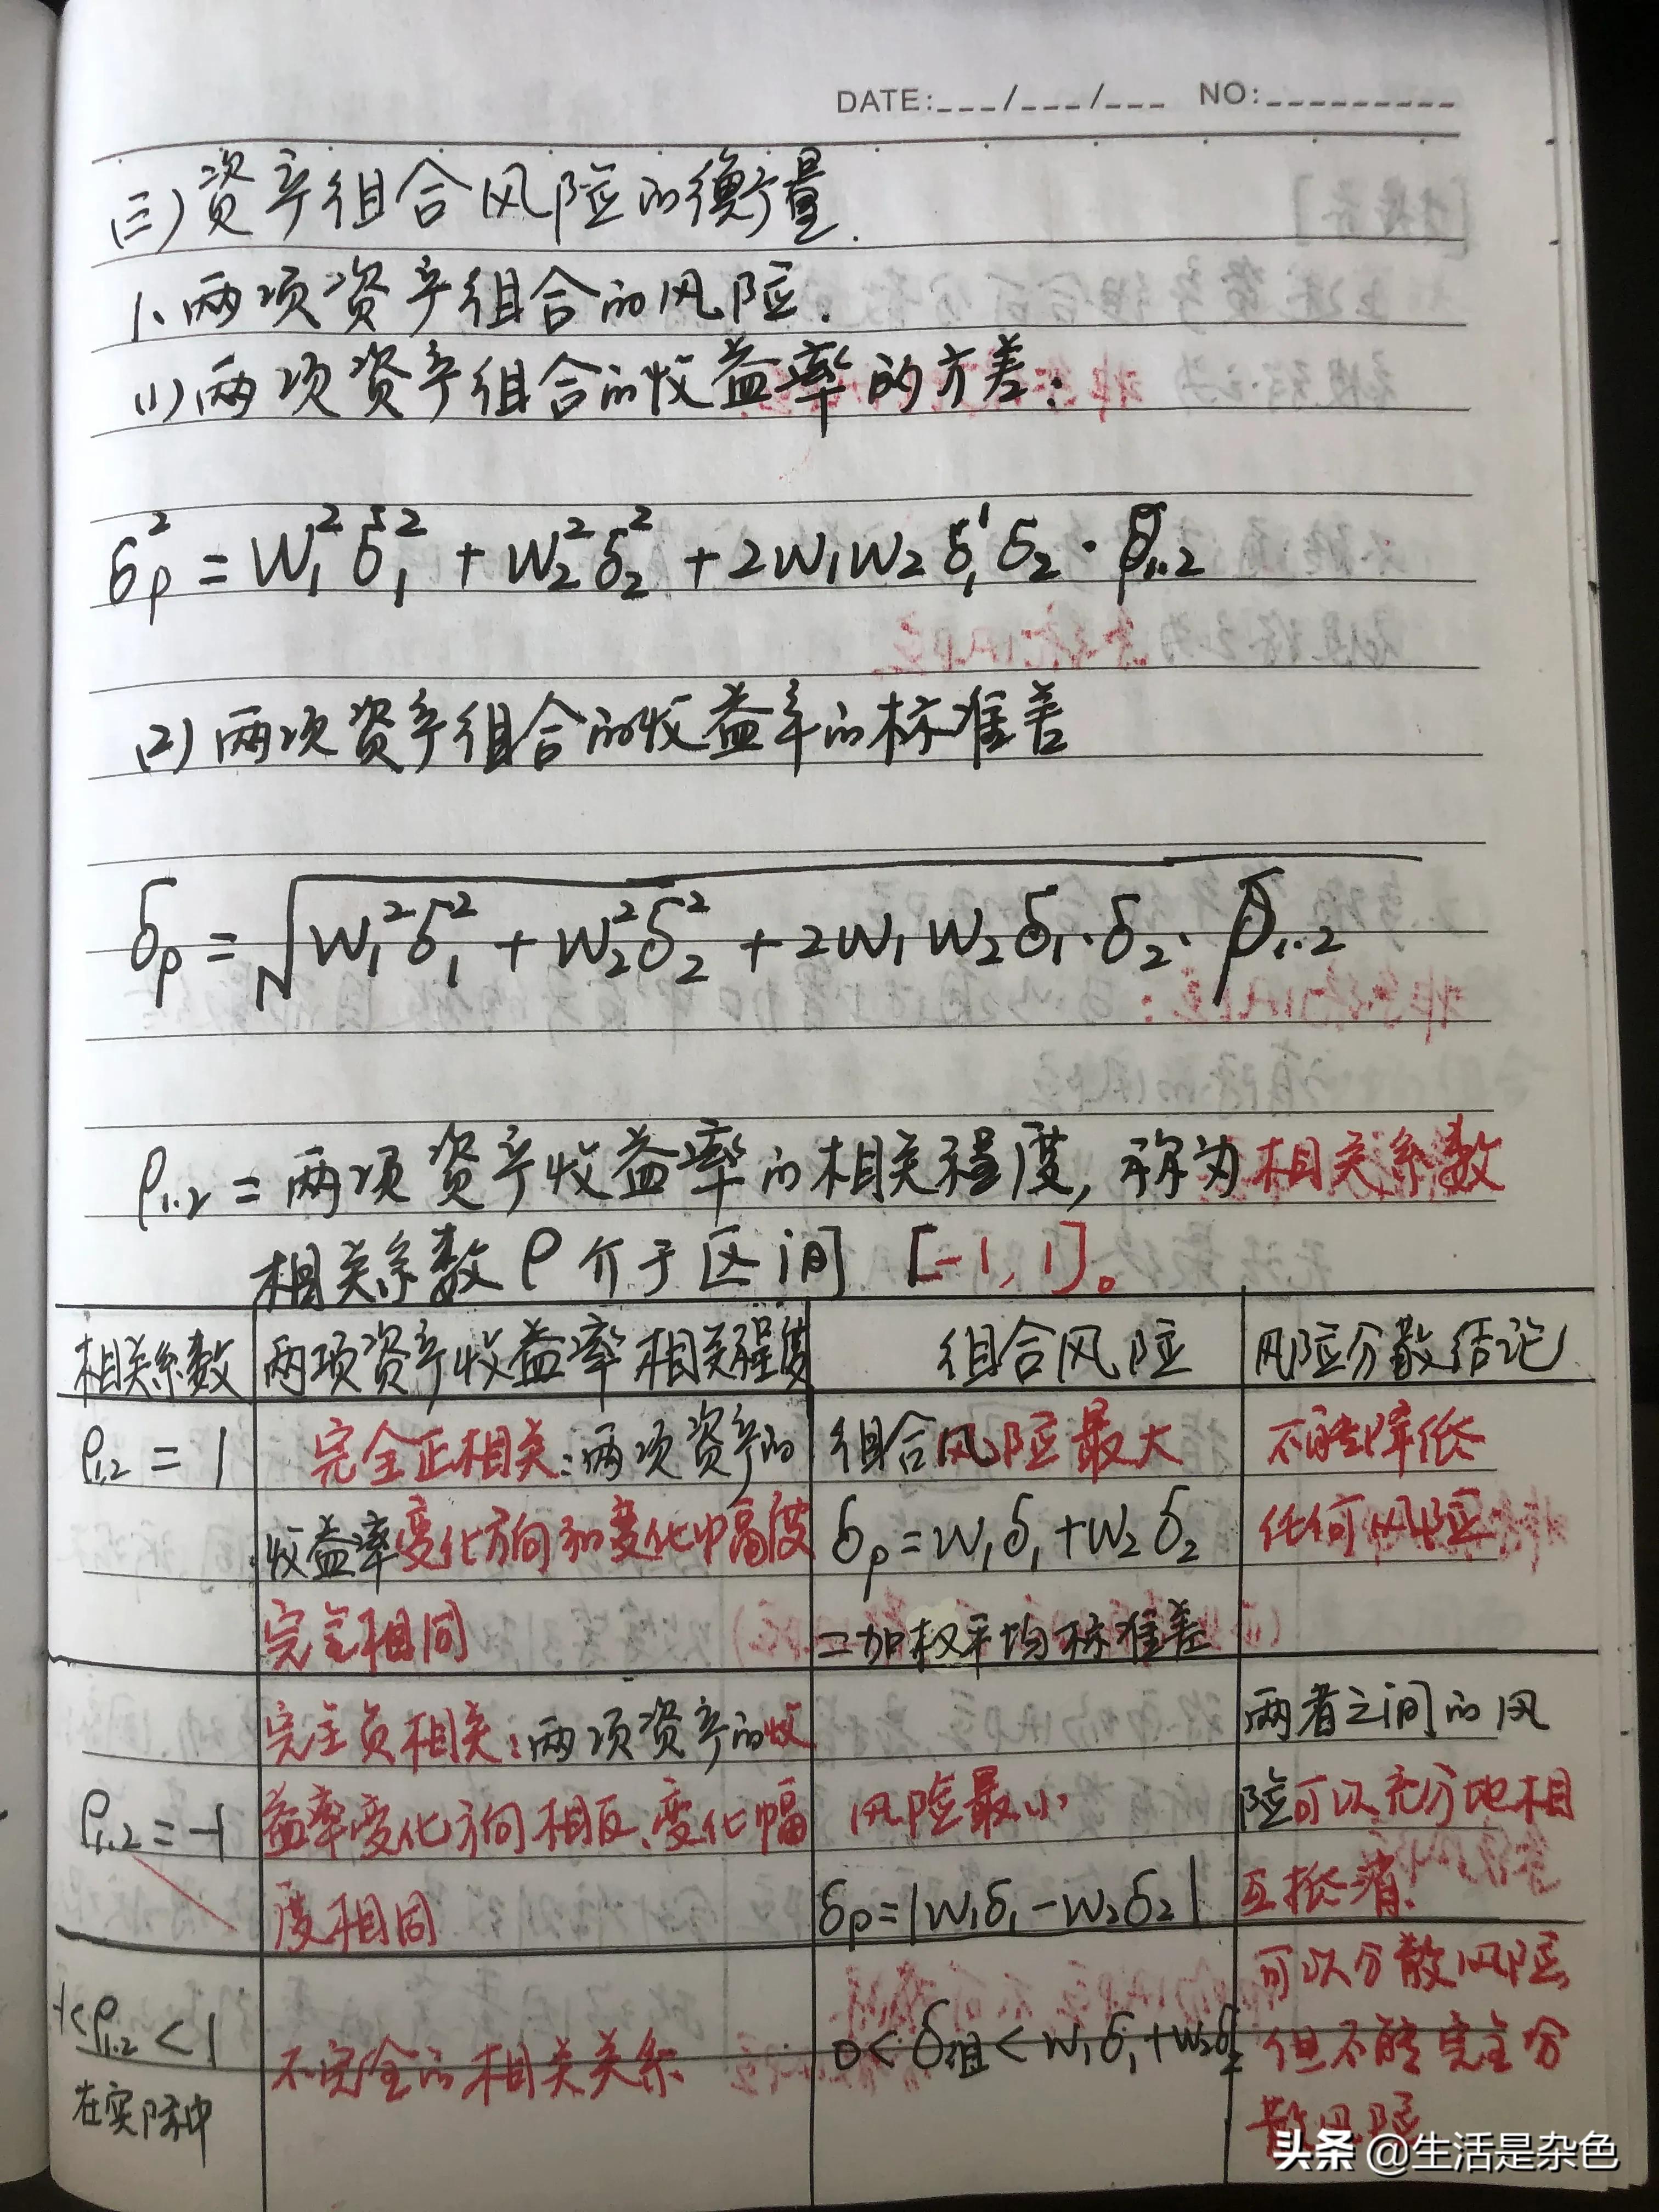 DATE:___/___/___ NO:_________
(三)资产组合风险的衡量.
1、两项资产组合的风险.
(1)两项资产组合的收益率的方差:
δp² = W₁²δ₁² + W₂²δ₂² + 2W₁W₂δ₁δ₂·ρ₁.₂
(2)两项资产组合的收益率的标准差
δp = √W₁²δ₁² + W₂²δ₂² + 2W₁W₂δ₁·δ₂·ρ₁.₂
ρ₁.₂ = 两项资产收益率的相关程度, 称为相关系数
相关系数ρ介于区间 [-1,1]。
相关系数 两项资产收益率相关程度 组合风险 风险分散结论
ρ₁.₂ = 1
完全正相关:两项资产的
收益率变化方向和变化巾幅度
完全相同
组合风险最大
δp=W₁δ₁+W₂δ₂
=加权平均标准差
不能降低
任何风险
ρ₁.₂=-1
完全负相关:两项资产的收
益率变化方向相反、变化幅
度相同
风险最小
δp=|W₁δ₁-W₂δ₂|
两者之间的风
险可以充分地相
互抵消.
-1<ρ₁.₂<1
在实际中
不完全的相关关系
0<δ组<W₁δ₁+W₂δ₂
可以分散风险
但不能完全分
散风险
头条 @生活是杂色